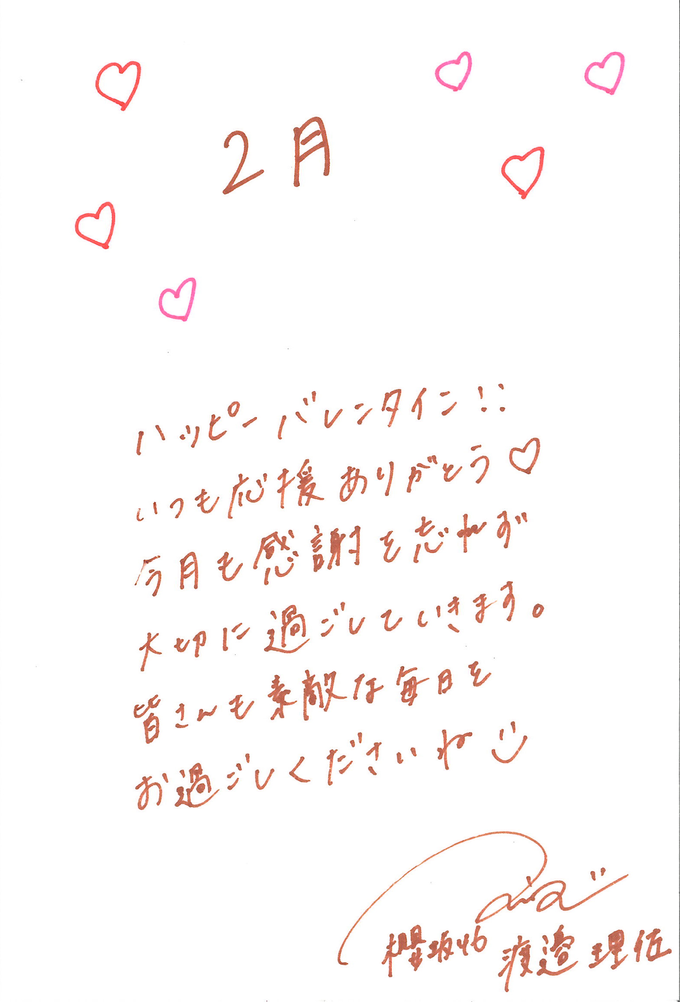 2月
ハッピーバレンタイン!!
いつも応援ありがとう♡
今月も感謝を忘れず
大切に過ごしていきます。
皆さんも素敵な毎日を
お過ごしくださいね
櫻坂46 渡邉理佐